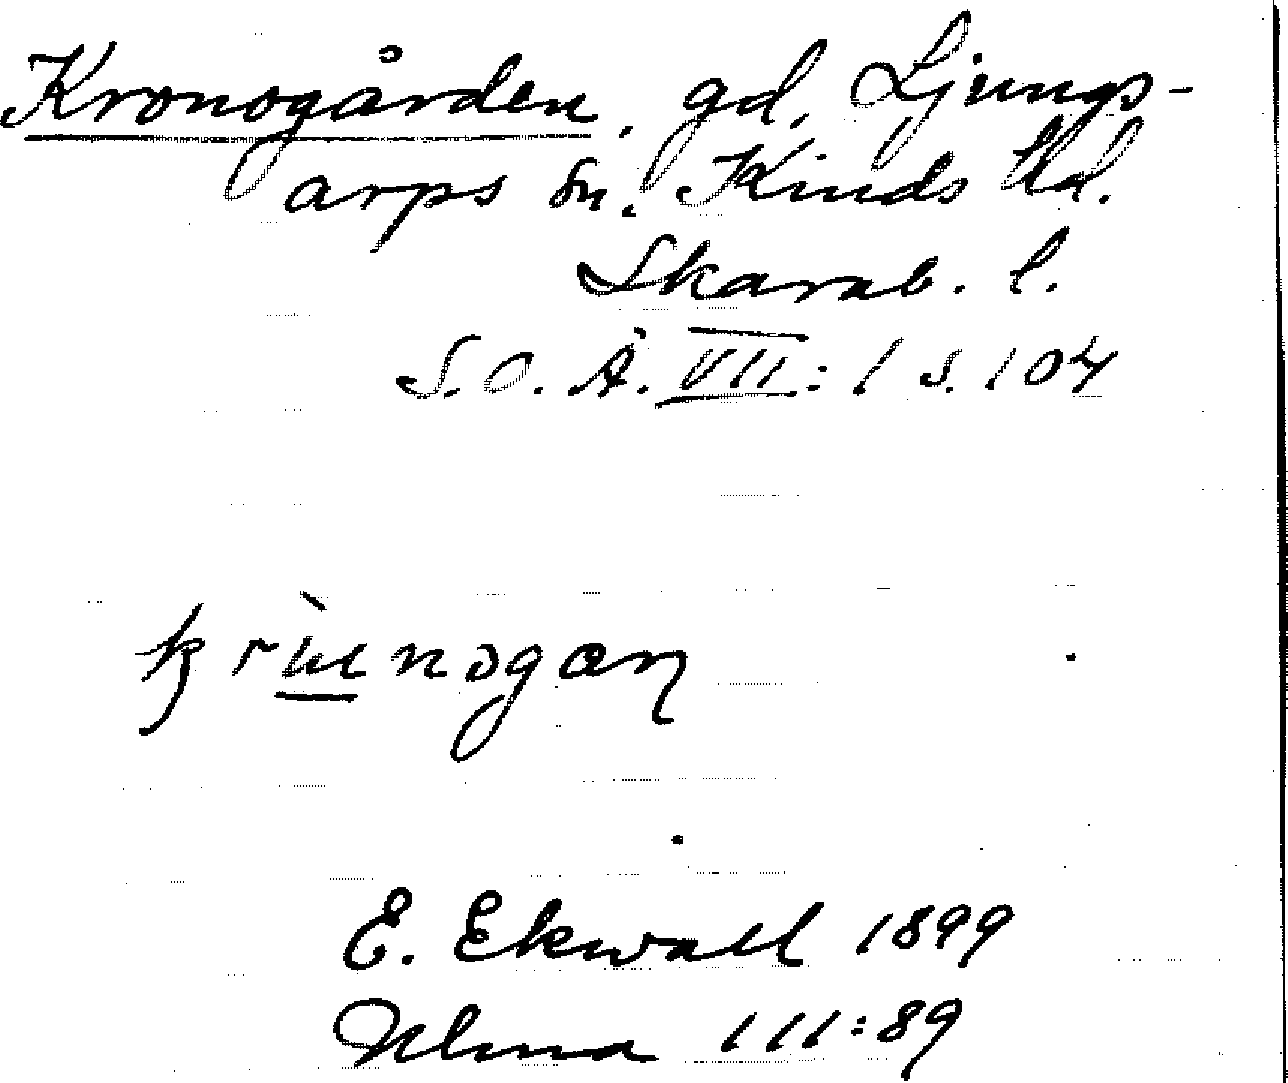 Kronogården, gd, Ljungs-
arps sn. Kinds hd.
Skarab. l.
S.O.Å. VII: 1 s. 104
E. Ekwall 1899
Ulma 111:89